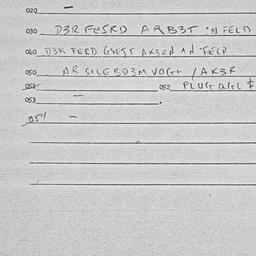 020 –
030 D3R FESRD ARB3T IN FELD
040 D3R FERD GVETT AK3ON AN FELD
050 AR SILEBD3M VOGT / AK3R
051 052 PLUGT
053 –
054 –